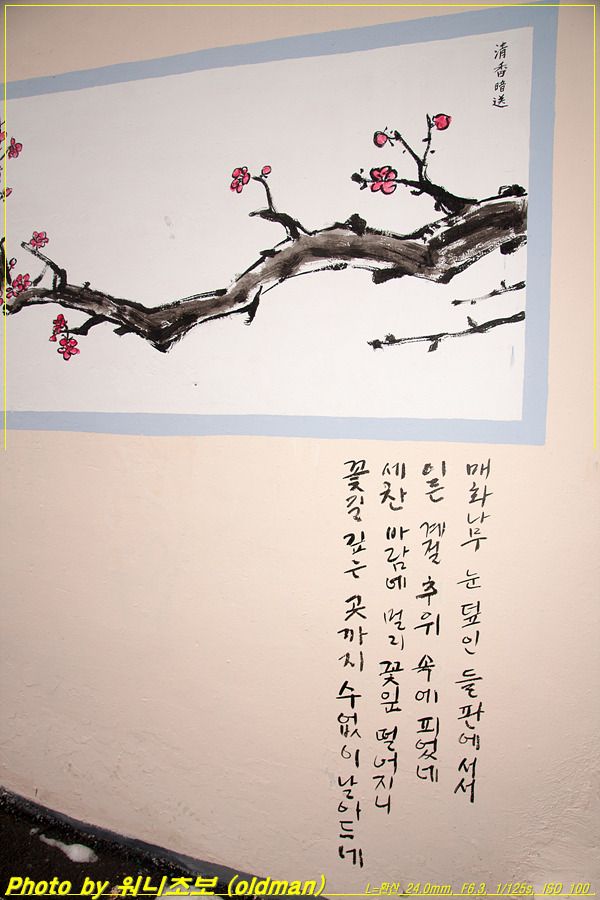 清香暗送
매화나무 눈 덮인 들판에 서서
이른 계절 추위 속에 피었네
세찬 바람에 멀리 꽃잎 떨어지니
꽃길 깊은 곳까지 수없이 날아드네
Photo by 워니초보 (oldman)
L-환산 24.0mm, F6.3, 1/125s, ISO 100